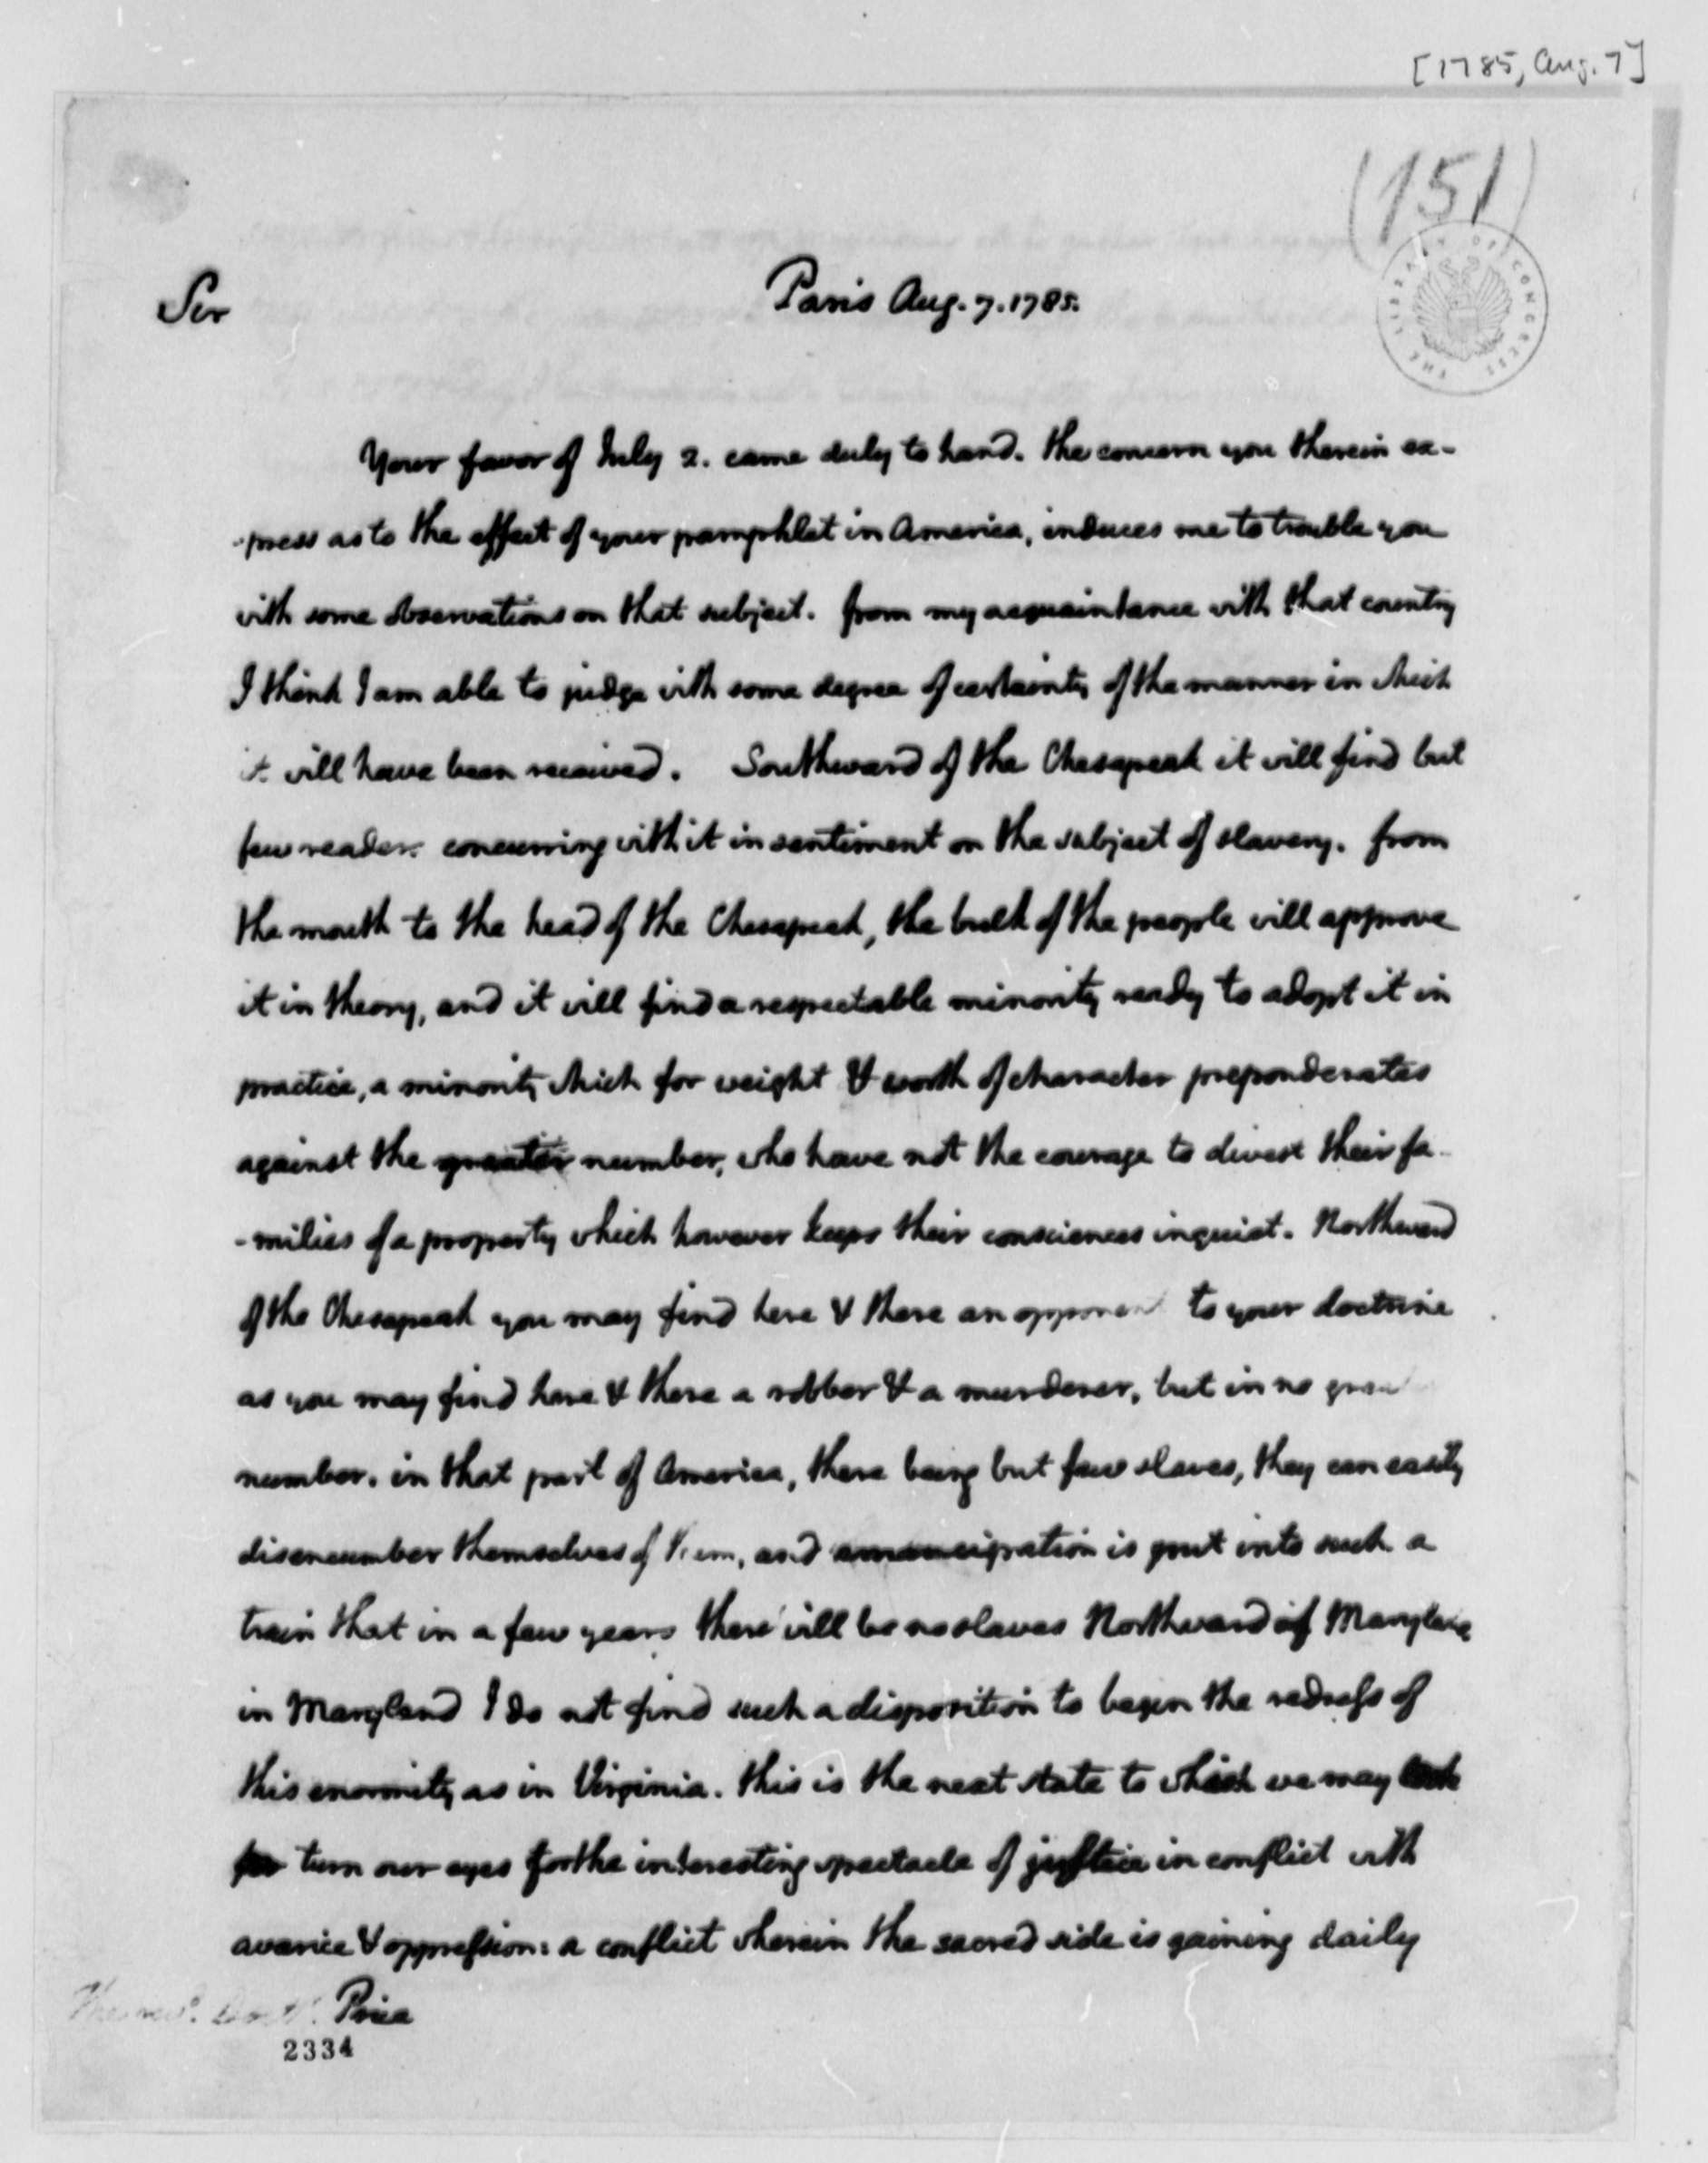 [1785, Aug. 7]
(151)
THE LIBRARY OF CONGRESS
Sir
Paris Aug. 7. 1785.
Your favor of July 2. came duly to hand. the concern you therein ex-
-press as to the effect of your pamphlet in America, induces me to trouble you
with some observations on that subject. from my acquaintance with that country
I think I am able to judge with some degree of certainty of the manner in which
it will have been received. Southward of the Chesapeak it will find but
few readers concurring with it in sentiment on the subject of slavery. from
the mouth to the head of the Chesapeak, the bulk of the people will approve
it in theory, and it will find a respectable minority ready to adopt it in
practice, a minority which for weight & worth of character preponderates
against the greater number, who have not the courage to divest their fa-
-milies of a property which however keeps their consciences inquiet. Northward
of the Chesapeak you may find here & there an opponent to your doctrine
as you may find here & there a robber & a murderer, but in no great
number. in that part of America, there being but few slaves, they can easily
disencumber themselves of them, and emancipation is put into such a
train that in a few years there will be no slaves Northward of Maryland
in Maryland I do not find such a disposition to begin the redress of
this enormity as in Virginia. this is the next state to which we may look
for turn our eyes for the interesting spectacle of justice in conflict with
avarice & oppression: a conflict wherein the sacred side is gaining daily
Price
2334